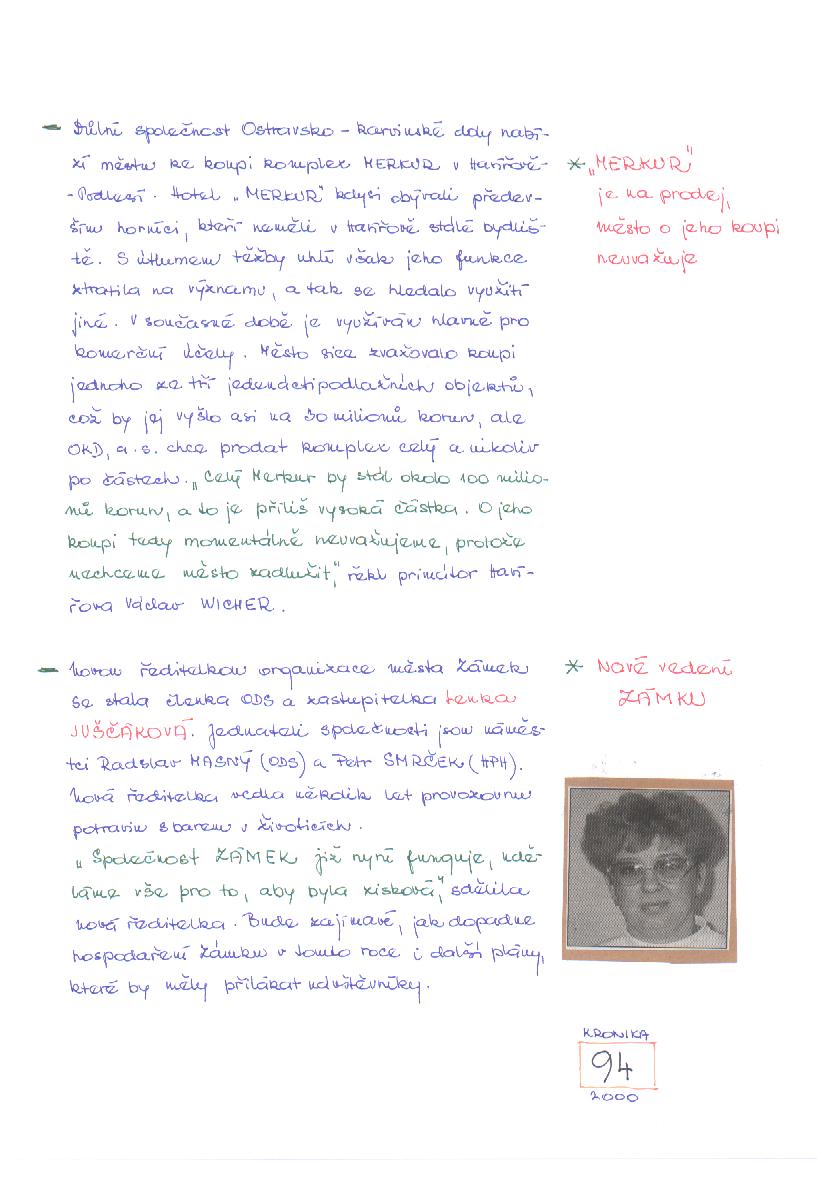 - Důlní společnost Ostravsko - karvinské doly nabí-
zí městu ke koupi komplex MERKUR v Havířově-
-Podlesí. Hotel „MERKUR" kdysi obývali předev-
ším horníci, kteří neměli v Havířově stálé bydliš-
tě. S útlumem těžby uhlí však jeho funkce
ztratila na významu, a tak se hledalo využití
jiné. V současné době je využíván hlavně pro
komerční účely. Město sice zvažovalo koupi
jednoho ze tří jedenáctipodlažních objektů,
což by jej vyšlo asi na 30 milionů korun, ale
OKD, a.s. chce prodat komplex celý a nikoliv
po částech. „Celý Merkur by stál okolo 100 milio-
nů korun, a to je příliš vysoká částka. O jeho
koupi tedy momentálně neuvažujeme, protože
nechceme město zadlužit," řekl primátor Haví-
řova Václav WICHER.
* „MERKUR"
je na prodej,
město o jeho koupi
neuvažuje
- Novou ředitelkou organizace města Zámek
se stala členka ODS a zastupitelka Lenka
JUŠČÁKOVÁ. Jednateli společnosti jsou náměs-
tci Radslav MASNÝ (ODS) a Petr SMRČEK (HPH).
Nová ředitelka vedla několik let provozovnu
potravin s barem v Životicích.
„Společnost ZÁMEK již nyní funguje, udě-
láme vše pro to, aby byla zisková," sdělila
nová ředitelka. Bude zajímavé, jak dopadne
hospodaření Zámku v tomto roce i další plány,
které by měly přilákat návštěvníky.
* Nové vedení
ZÁMKU
KRONIKA
94
2000